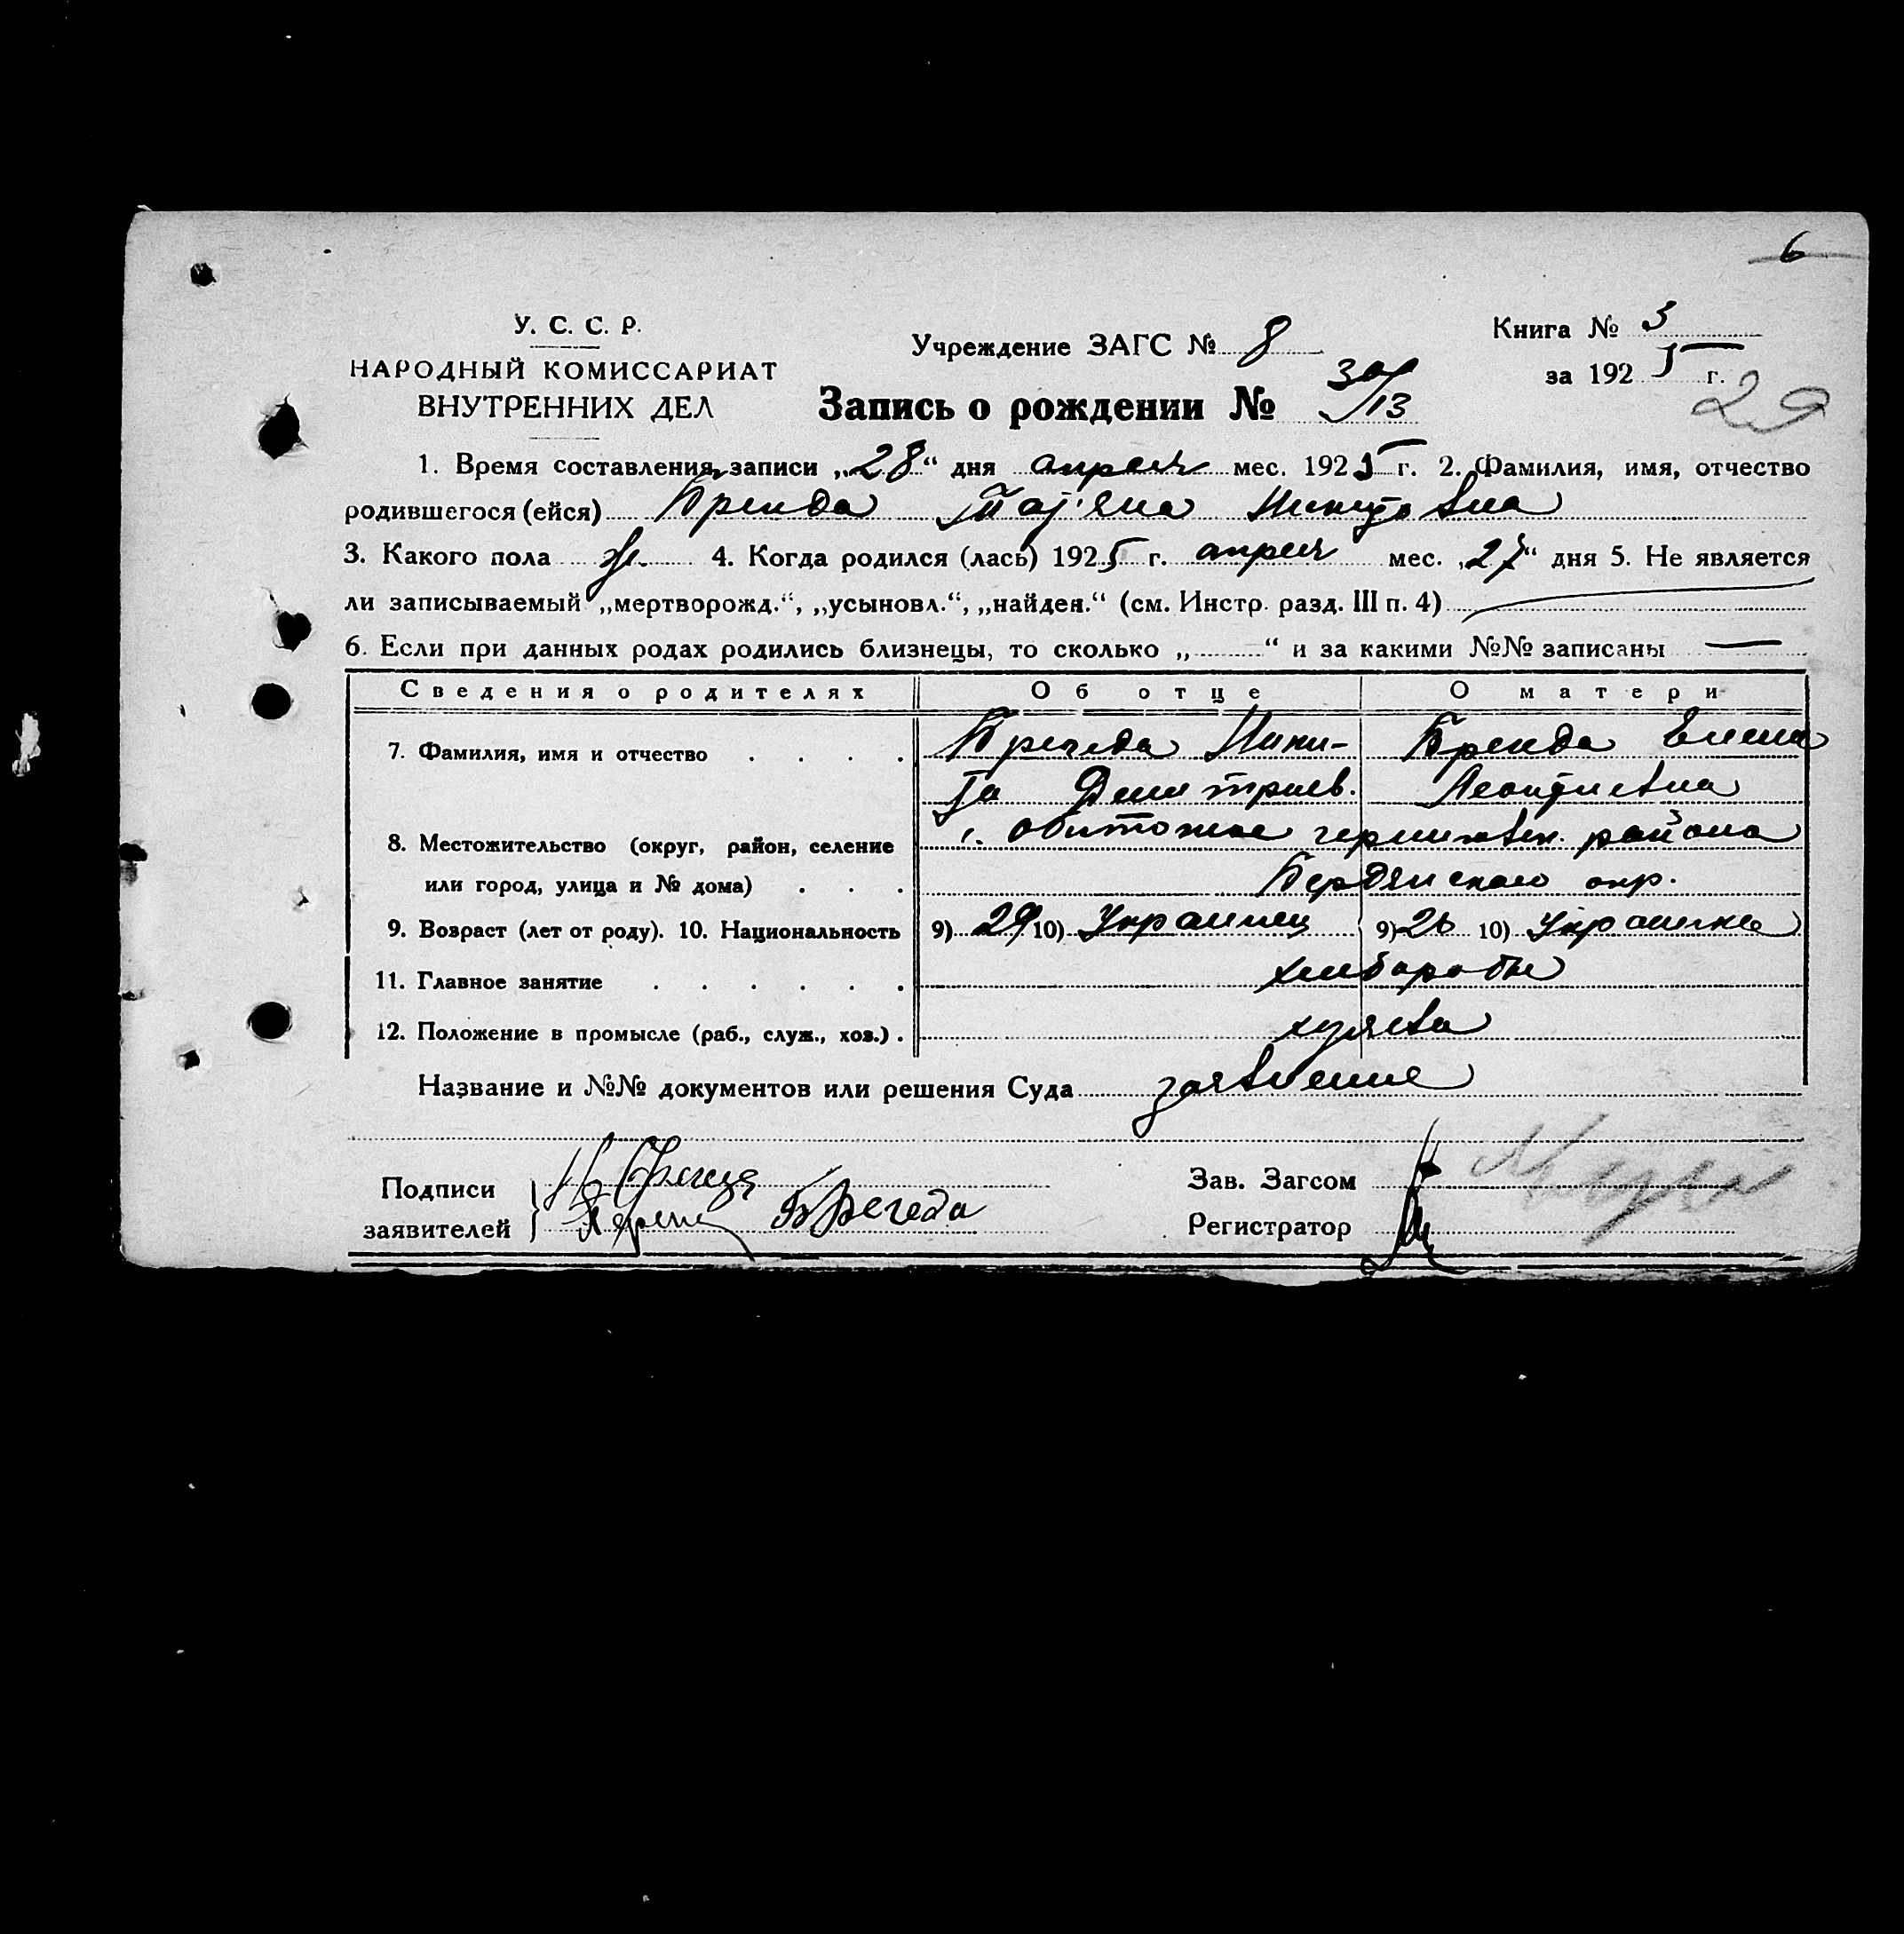 6
У. С. С. Р.
НАРОДНЫЙ КОМИССАРИАТ
ВНУТРЕННИХ ДЕЛ
Учреждение ЗАГС № 8
Книга № 3
за 1925 г.
29
Запись о рождении № 30/13
1. Время составления записи „28“ дня апреля мес. 1925 г. 2. Фамилия, имя, отчество
родившегося (ейся) Бренда Татьяна Никитовна
3. Какого пола ж. 4. Когда родился (лась) 1925 г. апреля мес. „27“ дня 5. Не является
ли записываемый „мертворожд.“, „усыновл.“, „найден.“ (см. Инстр. разд. III п. 4)
6. Если при данных родах родились близнецы, то сколько „ “ и за какими №№ записаны —
Сведения о родителях Об отце О матери
7. Фамилия, имя и отчество Бренда Ники- Бренда Елена
та Дмитриев. Леонтиевна
8. Местожительство (округ, район, селение с. Обиточное черниговск. района
или город, улица и № дома) Бердянского окр.
9. Возраст (лет от роду). 10. Национальность 9) 29 10) Украинец 9) 26 10) Украинка
11. Главное занятие хлеборобы
12. Положение в промысле (раб., служ., хоз.) хозяева
Название и №№ документов или решения Суда заявление
Подписи
заявителей
Зав. Загсом
Регистратор